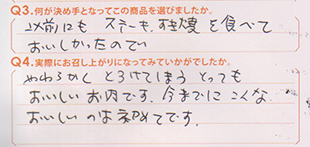 Q3.何が決め手となってこの商品を選びましたか。
以前にも ステーキ、すき焼を食べて
おいしかったので
Q4.実際にお召し上がりになってみていかがでしたか。
やわらかく とろけてしまう とっても
おいしいお肉です。今までに こんな
おいしいのは初めてです。